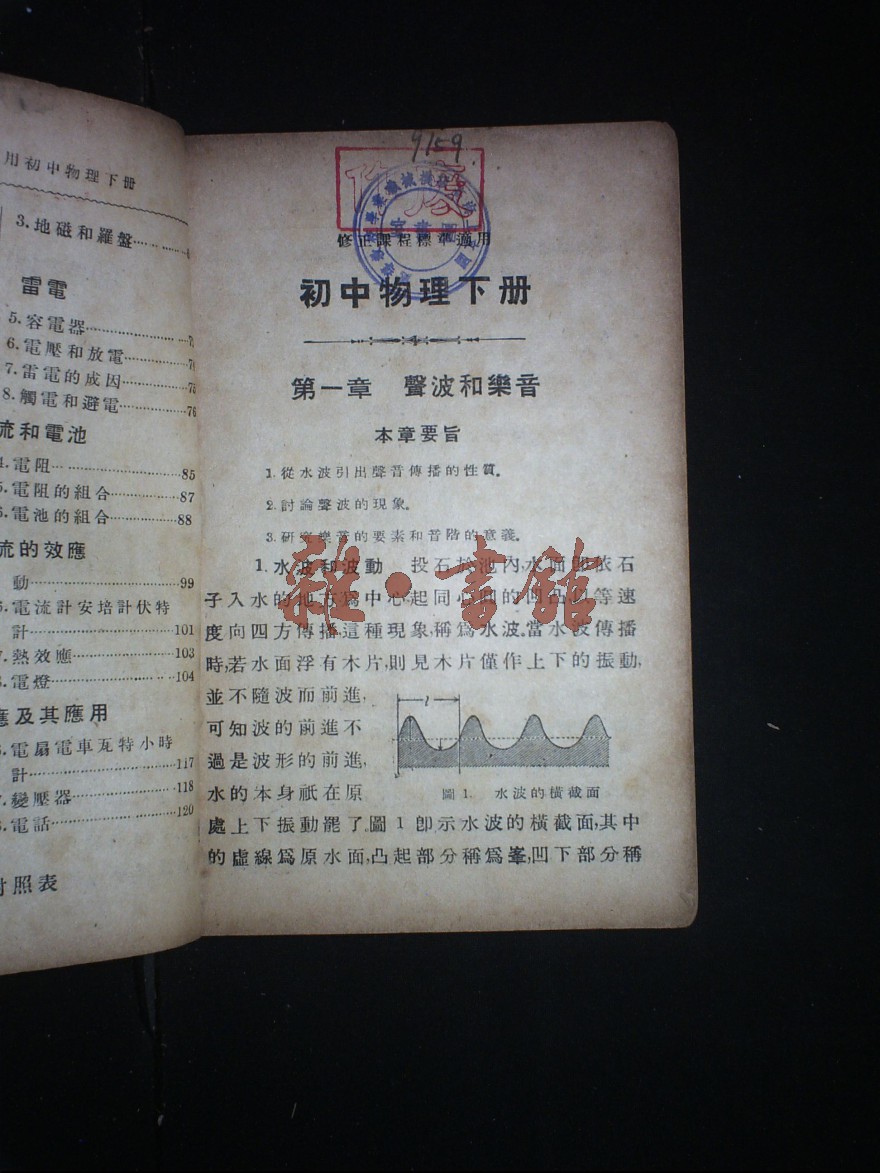 用初中物理下册
3.地磁和羅盤
雷電
5.容電器
6.電壓和放電
7.雷電的成因 75
8.觸電和避電 76
流和電池
電阻 85
電阻的組合 87
電池的組合 88
流的效應
動 99
電流計安培計伏特
計 101
熱效應 103
電燈 104
應及其應用
電扇電車瓦特小時
計 117
變壓器 118
電話 120
對照表
9159
修正課程標準適用
初中物理下册
第一章 聲波和樂音
本章要旨
1.從水波引出聲音傳播的性質。
2.討論聲波的現象。
3.研究樂音的要素和音階的意義。
1.水波和波動 投石於池內,水面即依石
子入水的地方爲中心,起同心圓的凹凸,以等速
度向四方傳播這種現象,稱爲水波.當水波傳播
時,若水面浮有木片,則見木片僅作上下的振動,
並不隨波而前進,
可知波的前進不
過是波形的前進,
水的本身祇在原
l
圖1. 水波的橫截面
處上下振動罷了.圖1卽示水波的橫截面,其中
的虛線爲原水面,凸起部分稱爲峯,凹下部分稱
雜·書館